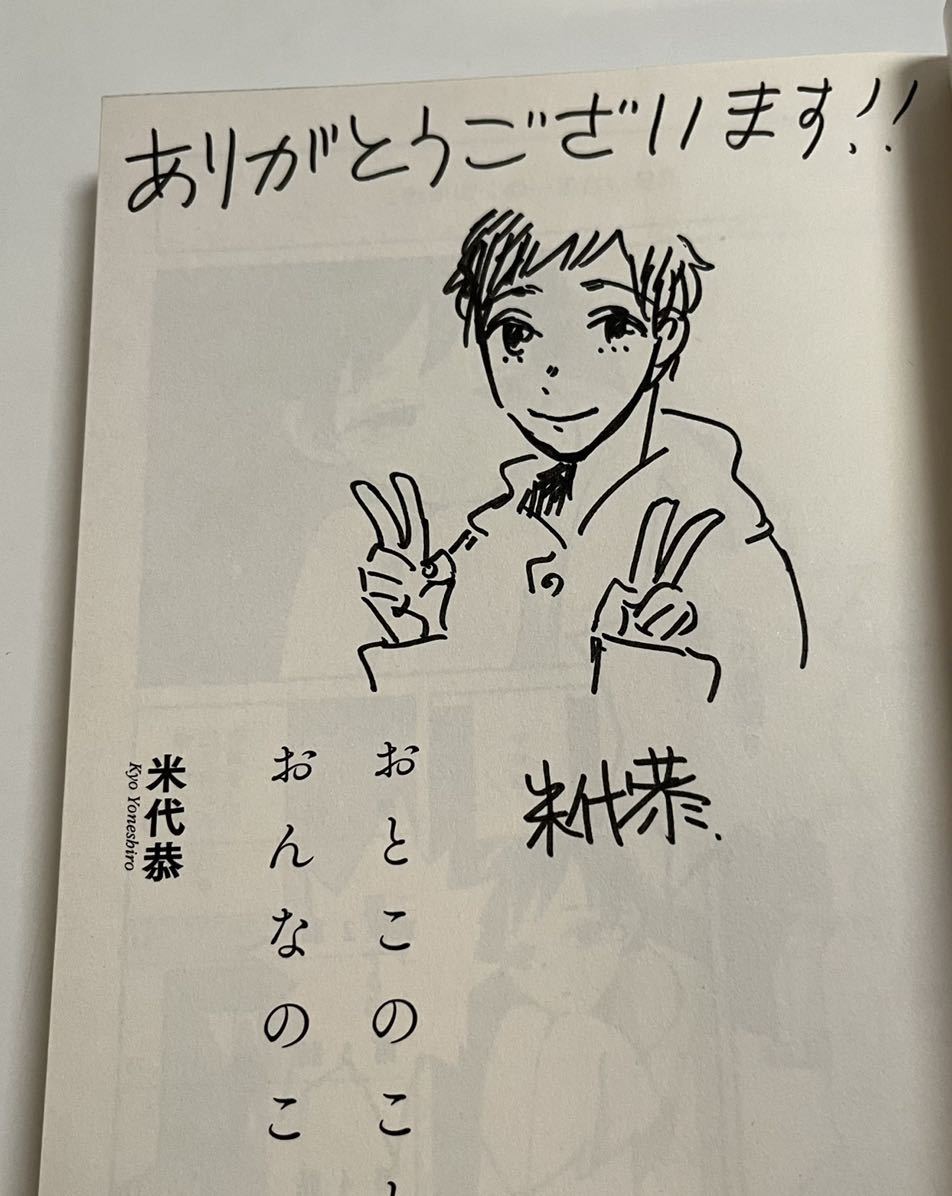 ありがとうございます!!
米代恭
おとこのこと
おんなのこ
米代恭
Kyo Yoneshiro